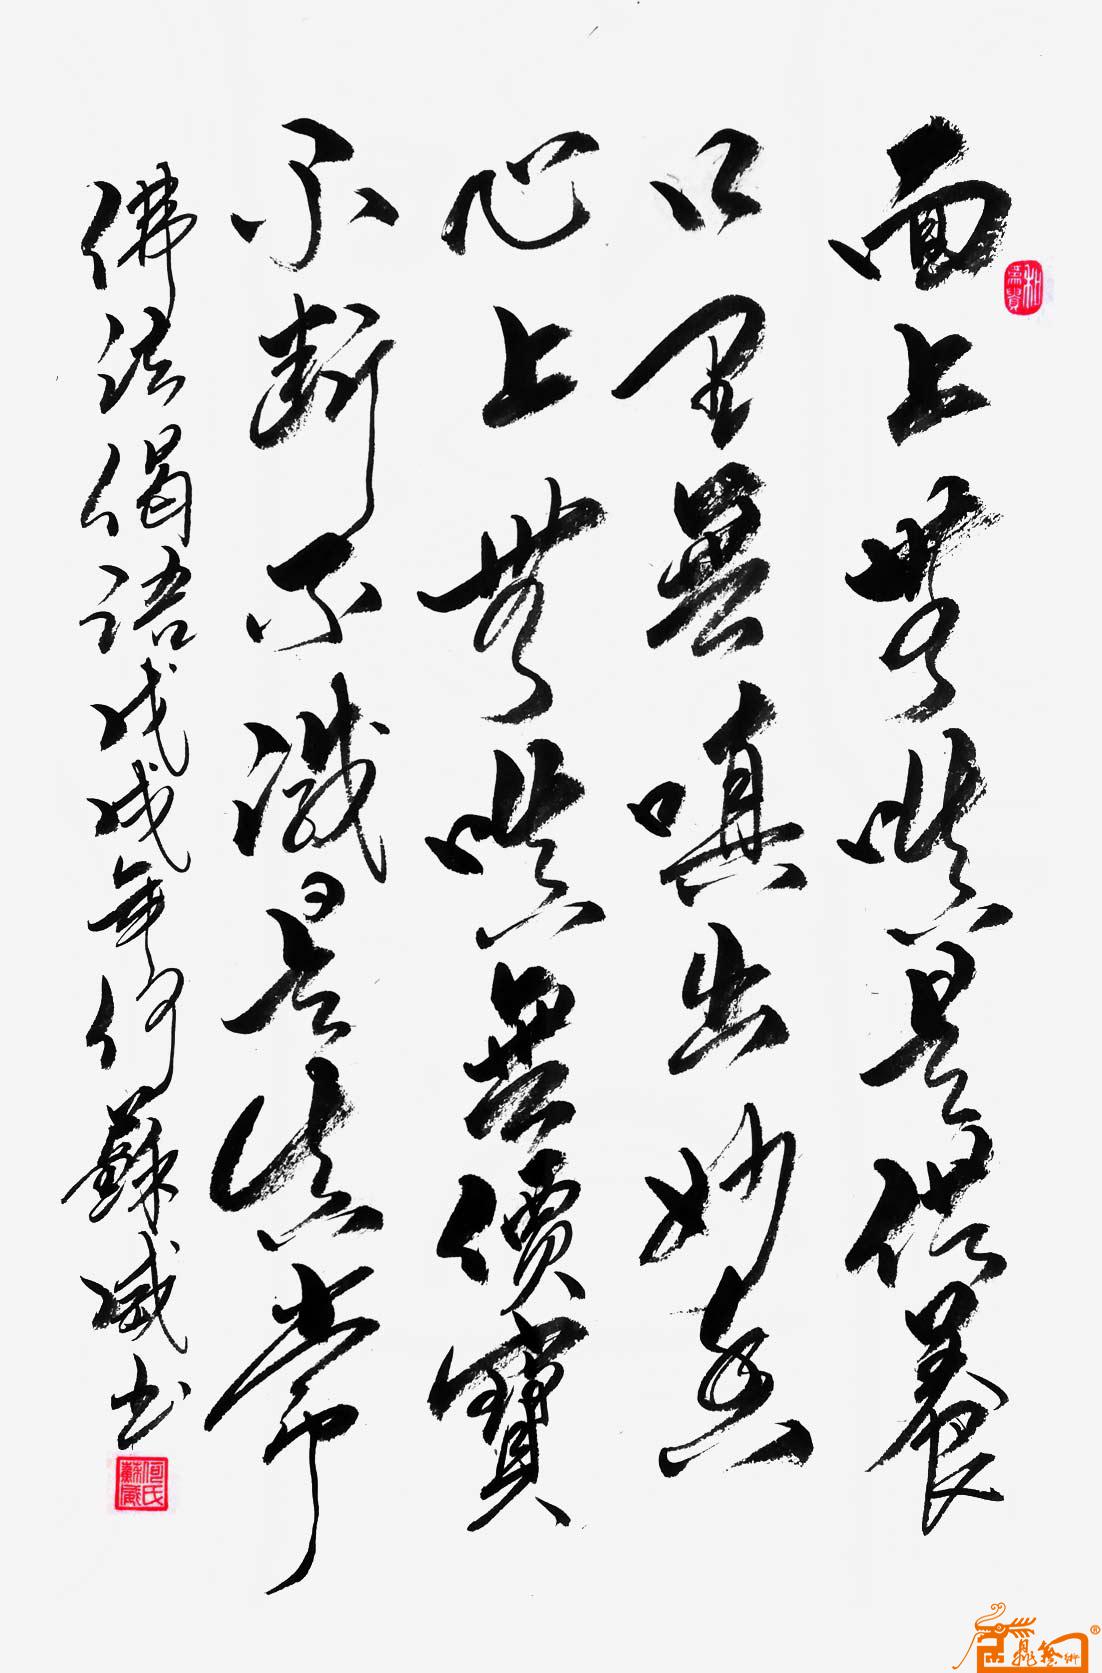 和為貴
面上無嗔是供養
口里無嗔出妙香
心上無嗔無價寶
不斷不滅是真常
佛法偈语戊戌年何蘇威书
何氏蘇威